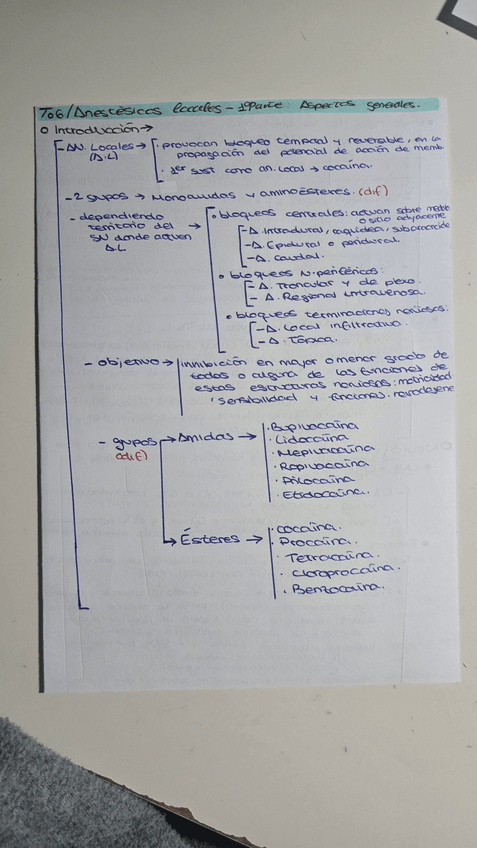 T06/Anestésicos locales - 1ª Parte: Aspectos generales.
o Introducción →
- AN. Locales → · provocan bloqueo temporal y reversible, en la
(A.L) propagación del potencial de acción de memb.
· 1er sust como an. local → cocaína.
- 2 grupos → Monoamidas y aminoésteres. (dif)
- dependiendo territorio del SN donde actuen A.L →
o bloqueos centrales: actuan sobre
o sitio adyacente
- A. intradural, raquídea, subaracnoide
- A. Epidural o peridural.
- A. caudal.
o bloqueos N. periféricos:
- A. Troncular y de plexo.
- A. Regional intravenosa.
o bloqueos terminaciones nerviosas:
- A. Local infiltrativa.
- A. Tópica.
- objetivo → inhibición en mayor o menor grado de
todas o alguna de las funciones de
estas estructuras nerviosas: motricidad
sensibilidad y funciones.
- grupos → Amidas →
(dif)
· Bupivacaína
· Lidocaína
· Mepivacaína
· Ropivacaína
· Prilocaína
· Etidocaína.
→ Ésteres →
· cocaína.
· Procaína.
· Tetracaína.
· Cloroprocaína.
· Benzocaína.